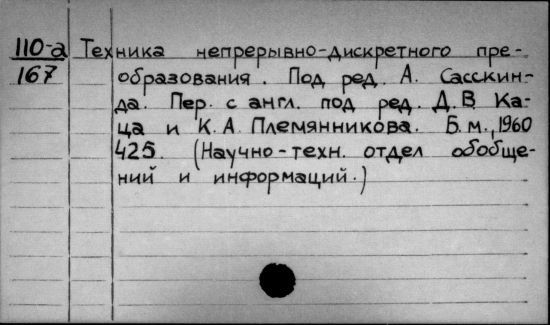 110-а Техника непрерывно-дискретного пре-
167 образования. Под ред. А. Сасскин-
да. Пер. с англ. под ред. Д.В. Ка-
ца и К.А. Племянникова. Б.м., 1960
425. (Научно-техн. отдел обобще-
ний и информаций.)